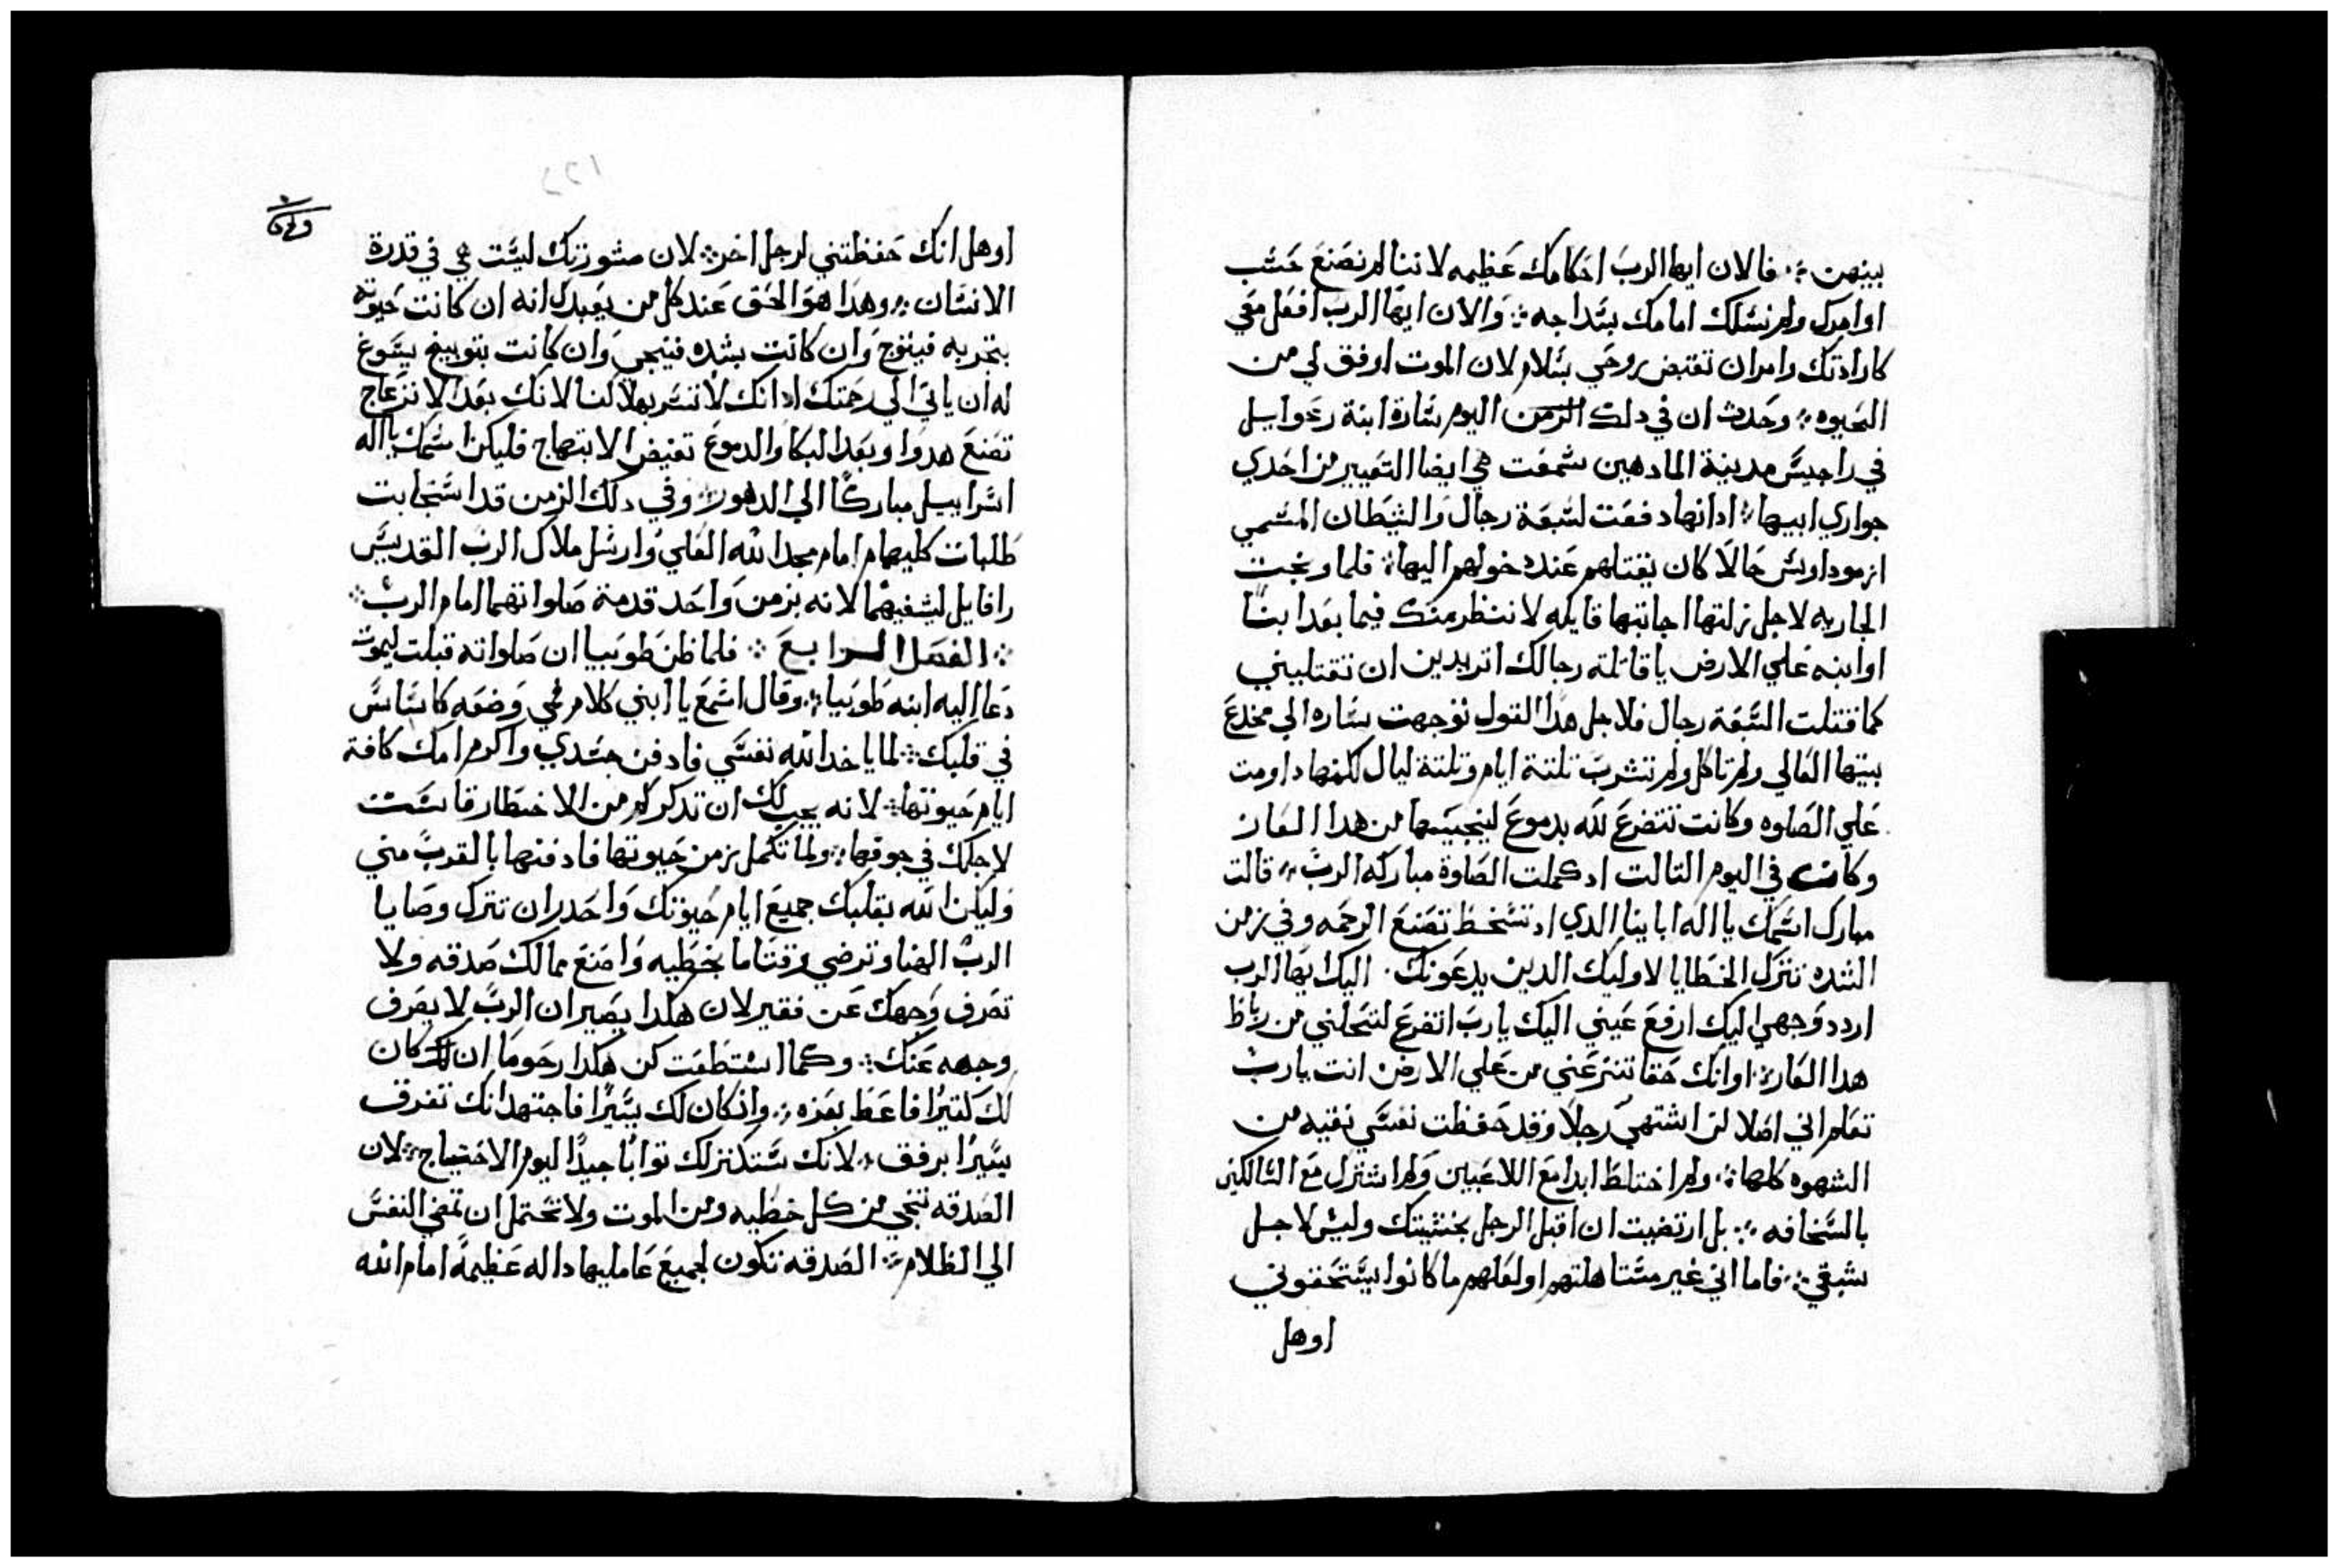 بينهن ∴ فالان ايها الرب احكامك عظيمه لاننا لم نصنع حسب
اوامرك ولم نسلك امامك بسداجه ∴ والان ايها الرب افعل معي
كارادتك وامر ان تقبض روحي بسلام لان الموت اوفق لي من
الحيوه ∴ وحدث ان في دلك الزمن اليوم ساره ابنة رعوايل
في راجيس مدينة المادهين سمعت هي ايضا التعيير من احدي
جواري ابيها ∴ ادانها دفعت لسبعة رجال والشيطان المسمي
ازموداوس حالا كان يقتلهم عند دخولهم اليها ∴ فلما وبخت
الجاريه لاجل زلتها اجابتها قايله لا ننظر منك فيما بعد ابنا
او ابنه علي الارض يا قاتلة رجالك اتريدين ان تقتليني
كما قتلت السبعة رجال فلاجل هدا القول توجهت ساره الي مخدع
بيتها العالي ولم تاكل ولم تشرب تلتة ايام وتلتة ليال لكنها داومت
علي الصلوه وكانت تتضرع لله بدموع لينجيها من هدا العار
وكانت في اليوم التالت اد كملت الصلوة مباركه الرب ∴ قالت
مبارك اسمك يا اله اباينا الدي اد تسخط تصنع الرحمه وفي زمن
الشده تترك الخطايا لاوليك الدين يدعونك ٠ اليك ايها الرب
اردد وجهي اليك ارفع عيني اليك يا رب اتضرع لتحلني من رباط
هدا العار ∴ او انك حقا تنزعني من علي الارض انت يا رب
تعلم اني اصلا لن اشتهي رجلا وقد حفظت نفسي نقيه من
الشهوه كلها ∴ ولم اختلط ابدا مع اللاعبين ولم اشترك مع السالكين
بالسخافه ∴ بل ارتضيت ان اقبل الرجل بخشيتك وليس لاجل
شبقي ∴ فاما اني غير مستاهلتهم او لعلهم ما كانوا يستحقوني
اوهل
اوهل انك حفظتني لرجل اخر ∴ لان مشورتك ليست هي في قدرة
الانسان ∴ وهدا هو الحق عند كل من يعبدك انه ان كانت حيوته
بتجربه فيتوج وان كانت بشده فينجي وان كانت بتوبيخ يسوغ
له ان ياتي الي رحمتك اد انك لا تسر بهلاكنا لانك بعد الانزعاج
تصنع هدوا وبعد البكا والدموع تفيض الابتهاج فليكن اسمك يا اله
اسراييل مباركا الي الدهور ∴ وفي دلك الزمن قد استجابت
طلبات كليهما امام مجد الله العلي وارسل ملاك الرب القديس
رافايل ليشفيهما لانه بزمن واحد قدمة صلواتهما امام الرب ∴
∴ الفصل الرابع ∴ فلما ظن طوبيا ان صلواته قبلت ليموت
دعا اليه ابنه طوبيا ∴ وقال اسمع يا ابني كلام فمي وضعه كاساس
في قلبك ∴ لما ياخد الله نفسي فادفن جسدي واكرم امك كافة
ايام حيوتها ∴ لانه يجب لك ان تدكر كم من الاخطار قاست
لاجلك في جوفها ∴ ولما تكمل زمن حيوتها فادفنها بالقرب مني
وليكن الله بقلبك جميع ايام حيوتك واحدر ان تترك وصايا
الرب الهنا وترضي وقتا ما بخطيه واصنع ممالك صدقه ولا
تصرف وجهك عن فقير لان هكدا يصير ان الرب لا يصرف
وجهه عنك ∴ وكما استطعت كن هكدا رحوما ان كان
لك كتيرا فاعط بعزه ∴ وان كان لك يسيرا فاجتهد انك تفرق
يسيرا برفق ∴ لانك ستدكنز لك توابا جيدا ليوم الاحتياج ∴ لان
الصدقه تنجي من كل خطيه ومن الموت ولا تحتمل ان تمضي النفس
الي الظلام ∴ الصدقه تكون لجميع عامليها داله عظيمة امام الله